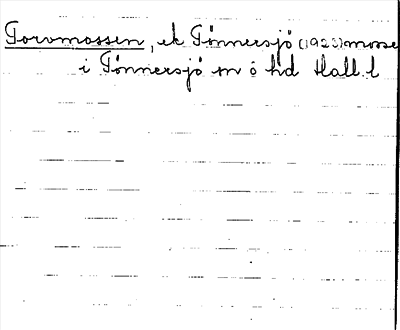 Torvmossen, ek Tönnersjö (1923) mosse
i Tönnersjö sn ö hd Hall. l